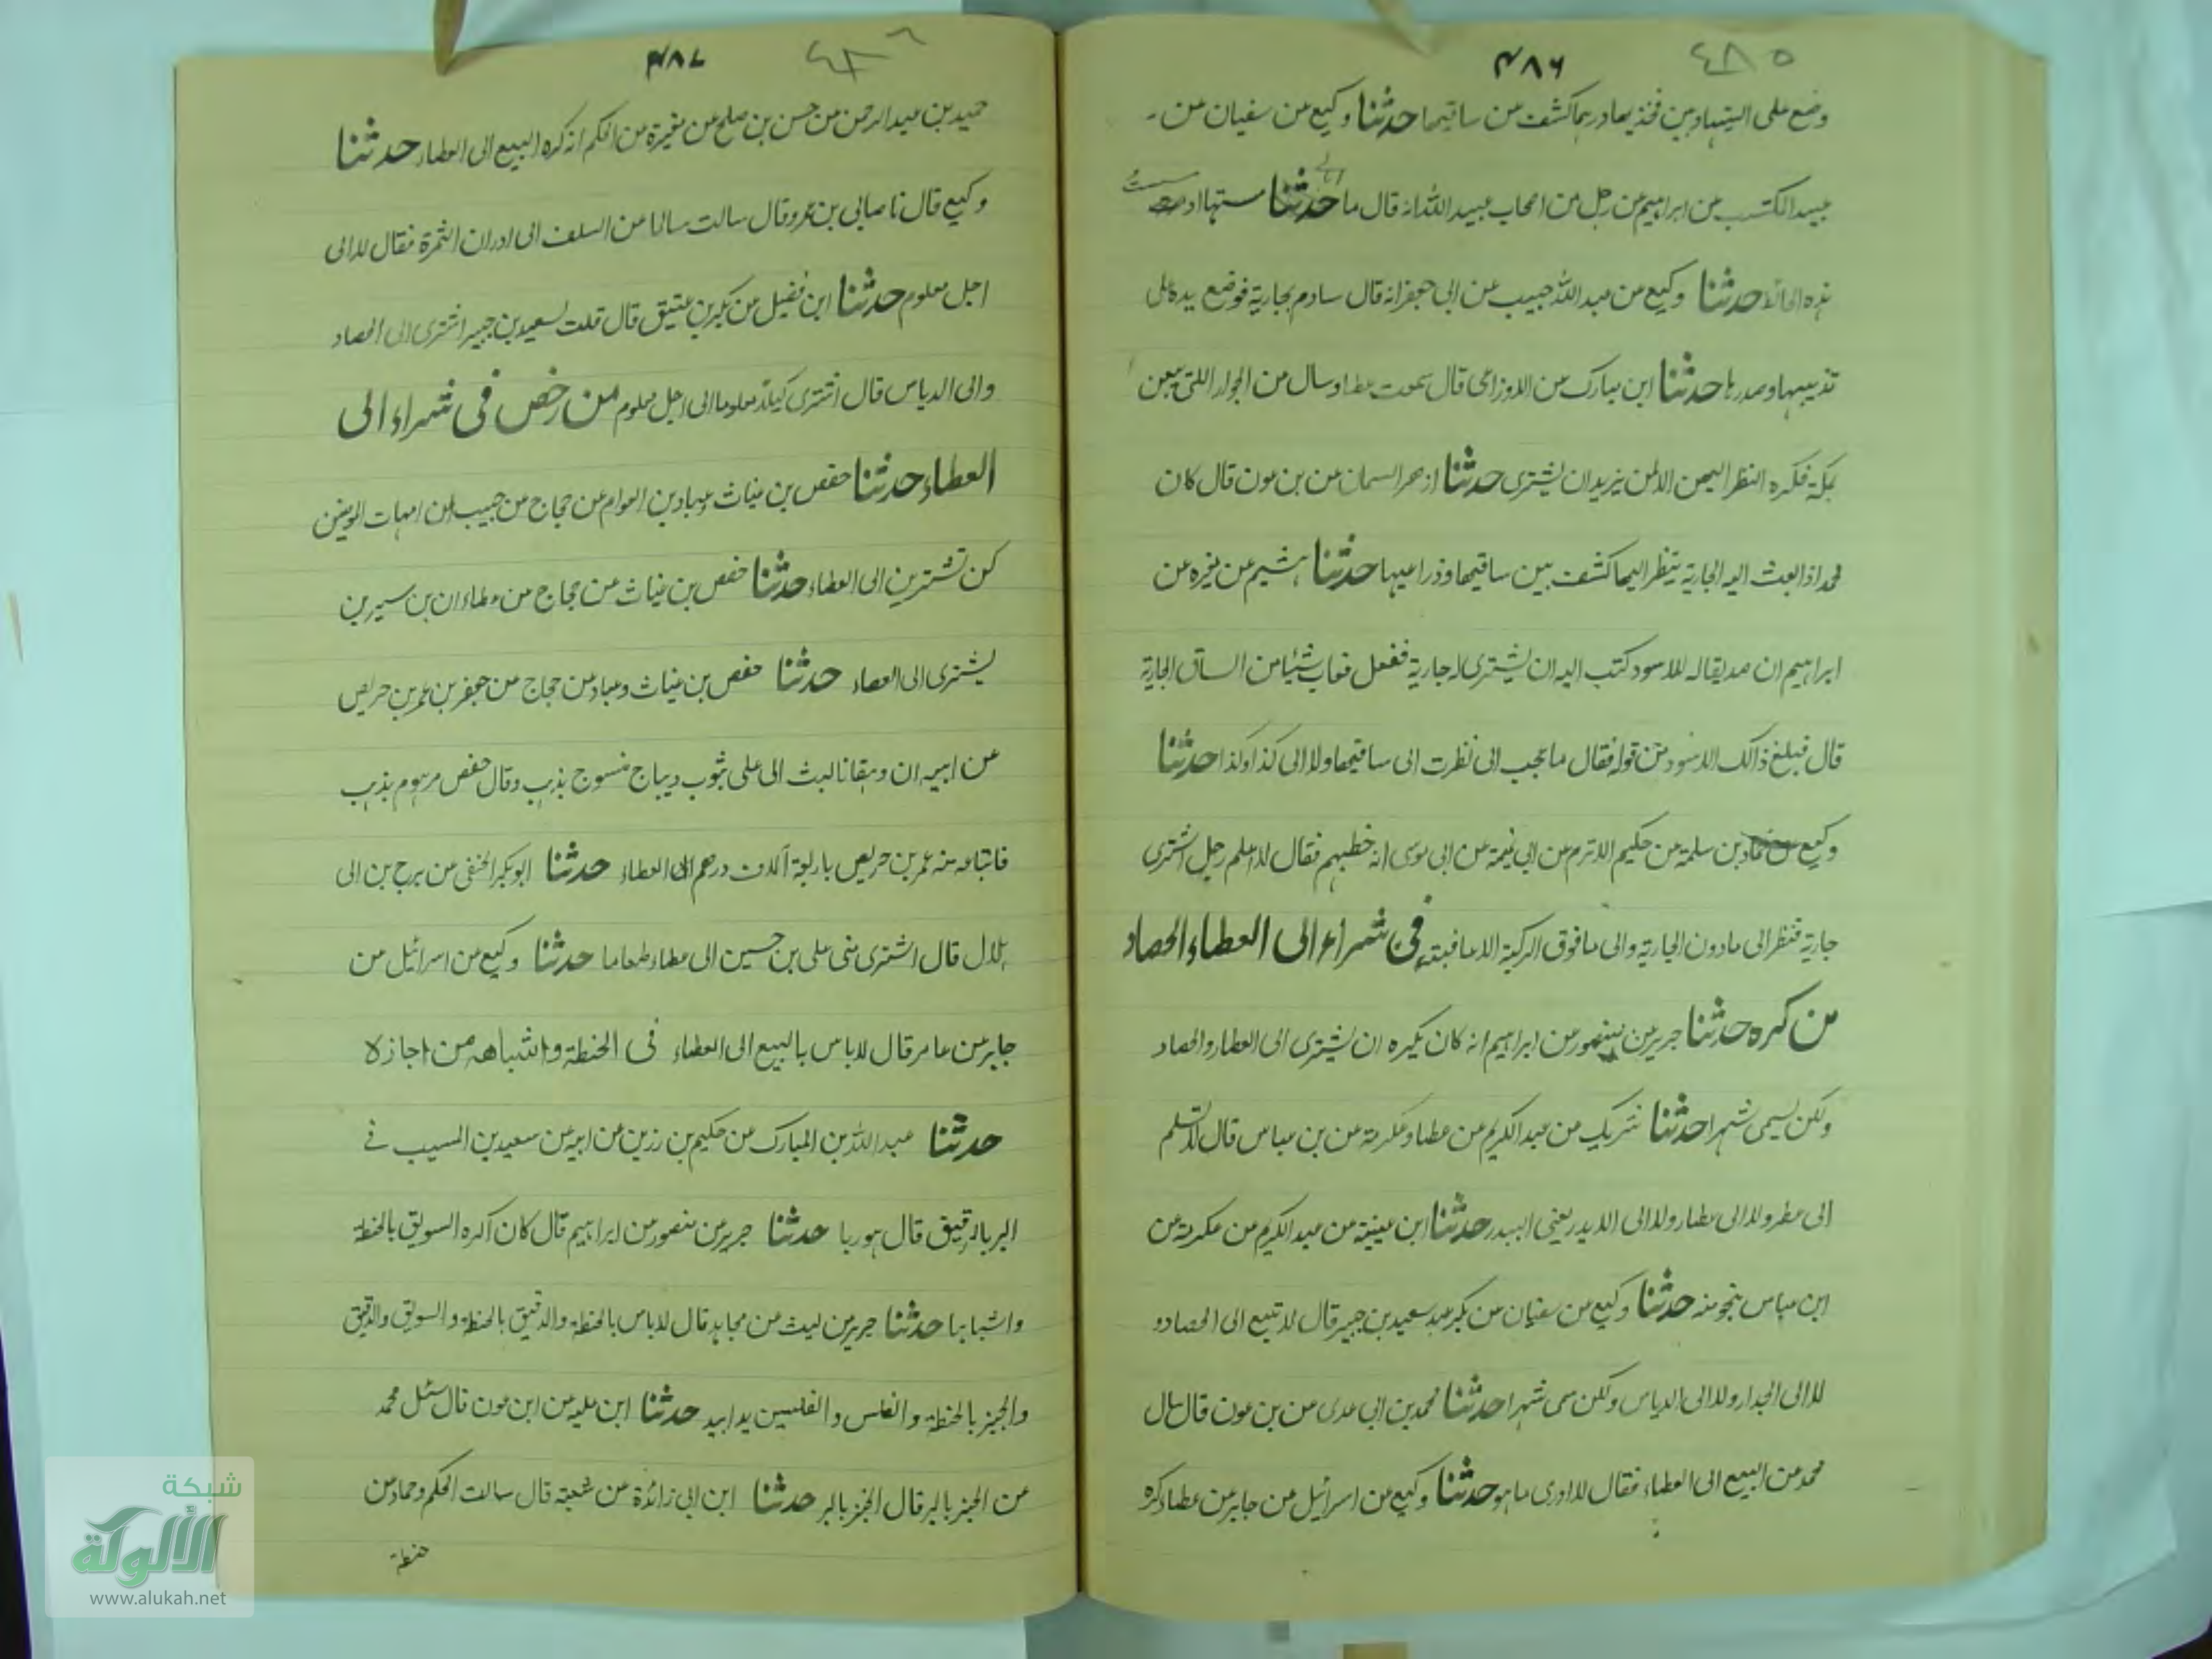 ٤٨٥ ۴۸۶
وضع على اليتيها وبين فخذيها وربما كشف من ساقيها حدثنا وكيع من سفيان من
عبيد المكتب من ابراهيم من رجل من اصحاب عبيد الله انه قال ما حدثنا مستها او
هذه الحائط حدثنا وكيع من عبد الله حبيب من ابى جعفر انه قال ساوم بجارية فوضع يده على
ثدييها وصدرها حدثنا ابن مبارك من الاوزاعى قال سمعت عطا وسال من الجوار اللتى يبعن
بمكة فكره النظر اليهن الا لمن يريد ان يشترى حدثنا ازهر السمان من بن عون قال كان
محمد اذا بعث اليه الجارية ينظر اليها كشف بين ساقيها وذراعيها حدثنا هشيم عن مغيره عن
ابراهيم ان صديقا له للاسود كتب اليه ان يشترى له جارية ففعل فعاب شيئا من الساق الجارية
قال فبلغ ذالك الاسود من قوله فقال ما يحب انى نظرت الى ساقيها ولا الى كذا وكذا حدثنا
وكيع حماد بن سلمة من حكيم الاثرم من ابى تميمة من ابى موسى انه خطبهم فقال لا اعلم رجل اشترى
جارية فنظر الى مادون الجارية والى ما فوق الركبة الا عاقبته فى شراء الى العطاء الحصاد
من كره حدثنا جرير من منصور من ابراهيم انه كان يكره ان يشترى الى العطار والحصاد
ولكن يسمى شهرا حدثنا شريك من عبد الكريم من عطا وعكرمة من بن عباس قال لا تسلم
الى عطر ولا الى عطار ولا الى الاندر يعنى البيدر حدثنا ابن عيينة من عبد الكريم من عكرمة من
ابن عباس بنحو منه حدثنا وكيع من سفيان من بكير سعيد بن جبير قال لا تبيع الى الحصاد و
لا الى الجدار ولا الى الدياس ولكن سمى شهرا حدثنا محمد بن ابى عدى من بن عون قال سال
محمد من البيع الى العطاء فقال لا ادرى ما هو حدثنا وكيع من اسرائيل من جابر من عطاء كره
٤٨٦ ۴۸۷
حميد بن عبد الرحمن من حسن بن صلح من مغيرة من الحكم انه كره البيع الى العطاء حدثنا
وكيع قال نا صابى بن عمرو قال سالت سالما من السلف الى ادران الثمرة فقال لا الى
اجل معلوم حدثنا ابن فضيل من بكير بن عتيق قال قلت لسعيد بن جبير اشترى الى الحصاد
والى الدياس قال اشترى كيلا معلوما الى اجل معلوم من رخص فى شراء الى
العطاء حدثنا حفص بن غياث وعباد بن العوام من حجاج من حبيب ان امهات المومنين
كن تشترين الى العطاء حدثنا حفص بن غياث من حجاج من عطاء ان بن سيرين
يشترى الى العصاء حدثنا حفص بن غياث وعباد من حجاج من جعفر بن عمر بن حريص
من ابيه ان دهقانا بعث الى على بثوب ديباج منسوج بذهب وقال حفص مرهوم بذهب
فابتاعه منه عمر بن حريص باربعة آلاف درهم الى العطاء حدثنا ابو بكر الحنفى من برح بن ابى
بلال قال اشترى منى على بن حسين الى عطاء طعاما حدثنا وكيع من اسرائيل من
جابر من عامر قال لاباس بالبيع الى العطاء فى الحنطة واشباهه من اجازه
حدثنا عبد الله بن المبارك من حكيم بن رزين من ابيه من سعيد بن المسيب فى
البر بالدقيق قال هو ربا حدثنا جرير من منصور من ابراهيم قال كان اكره السويق بالحنطة
واشباهها حدثنا جرير من ليث من مجاهد قال لاباس بالحنطة والدقيق بالحنطة والسويق والدقيق
والخبز بالحنطة والفلس والفلسين يدا بيد حدثنا ابن علية من ابن عون قال سئل محمد
من الخبز بالبر قال الخبز بالبر حدثنا ابن ابى زائدة من شعبة قال سالت الحكم وحماد من
حنطة
شبكة
الألوكة
www.alukah.net